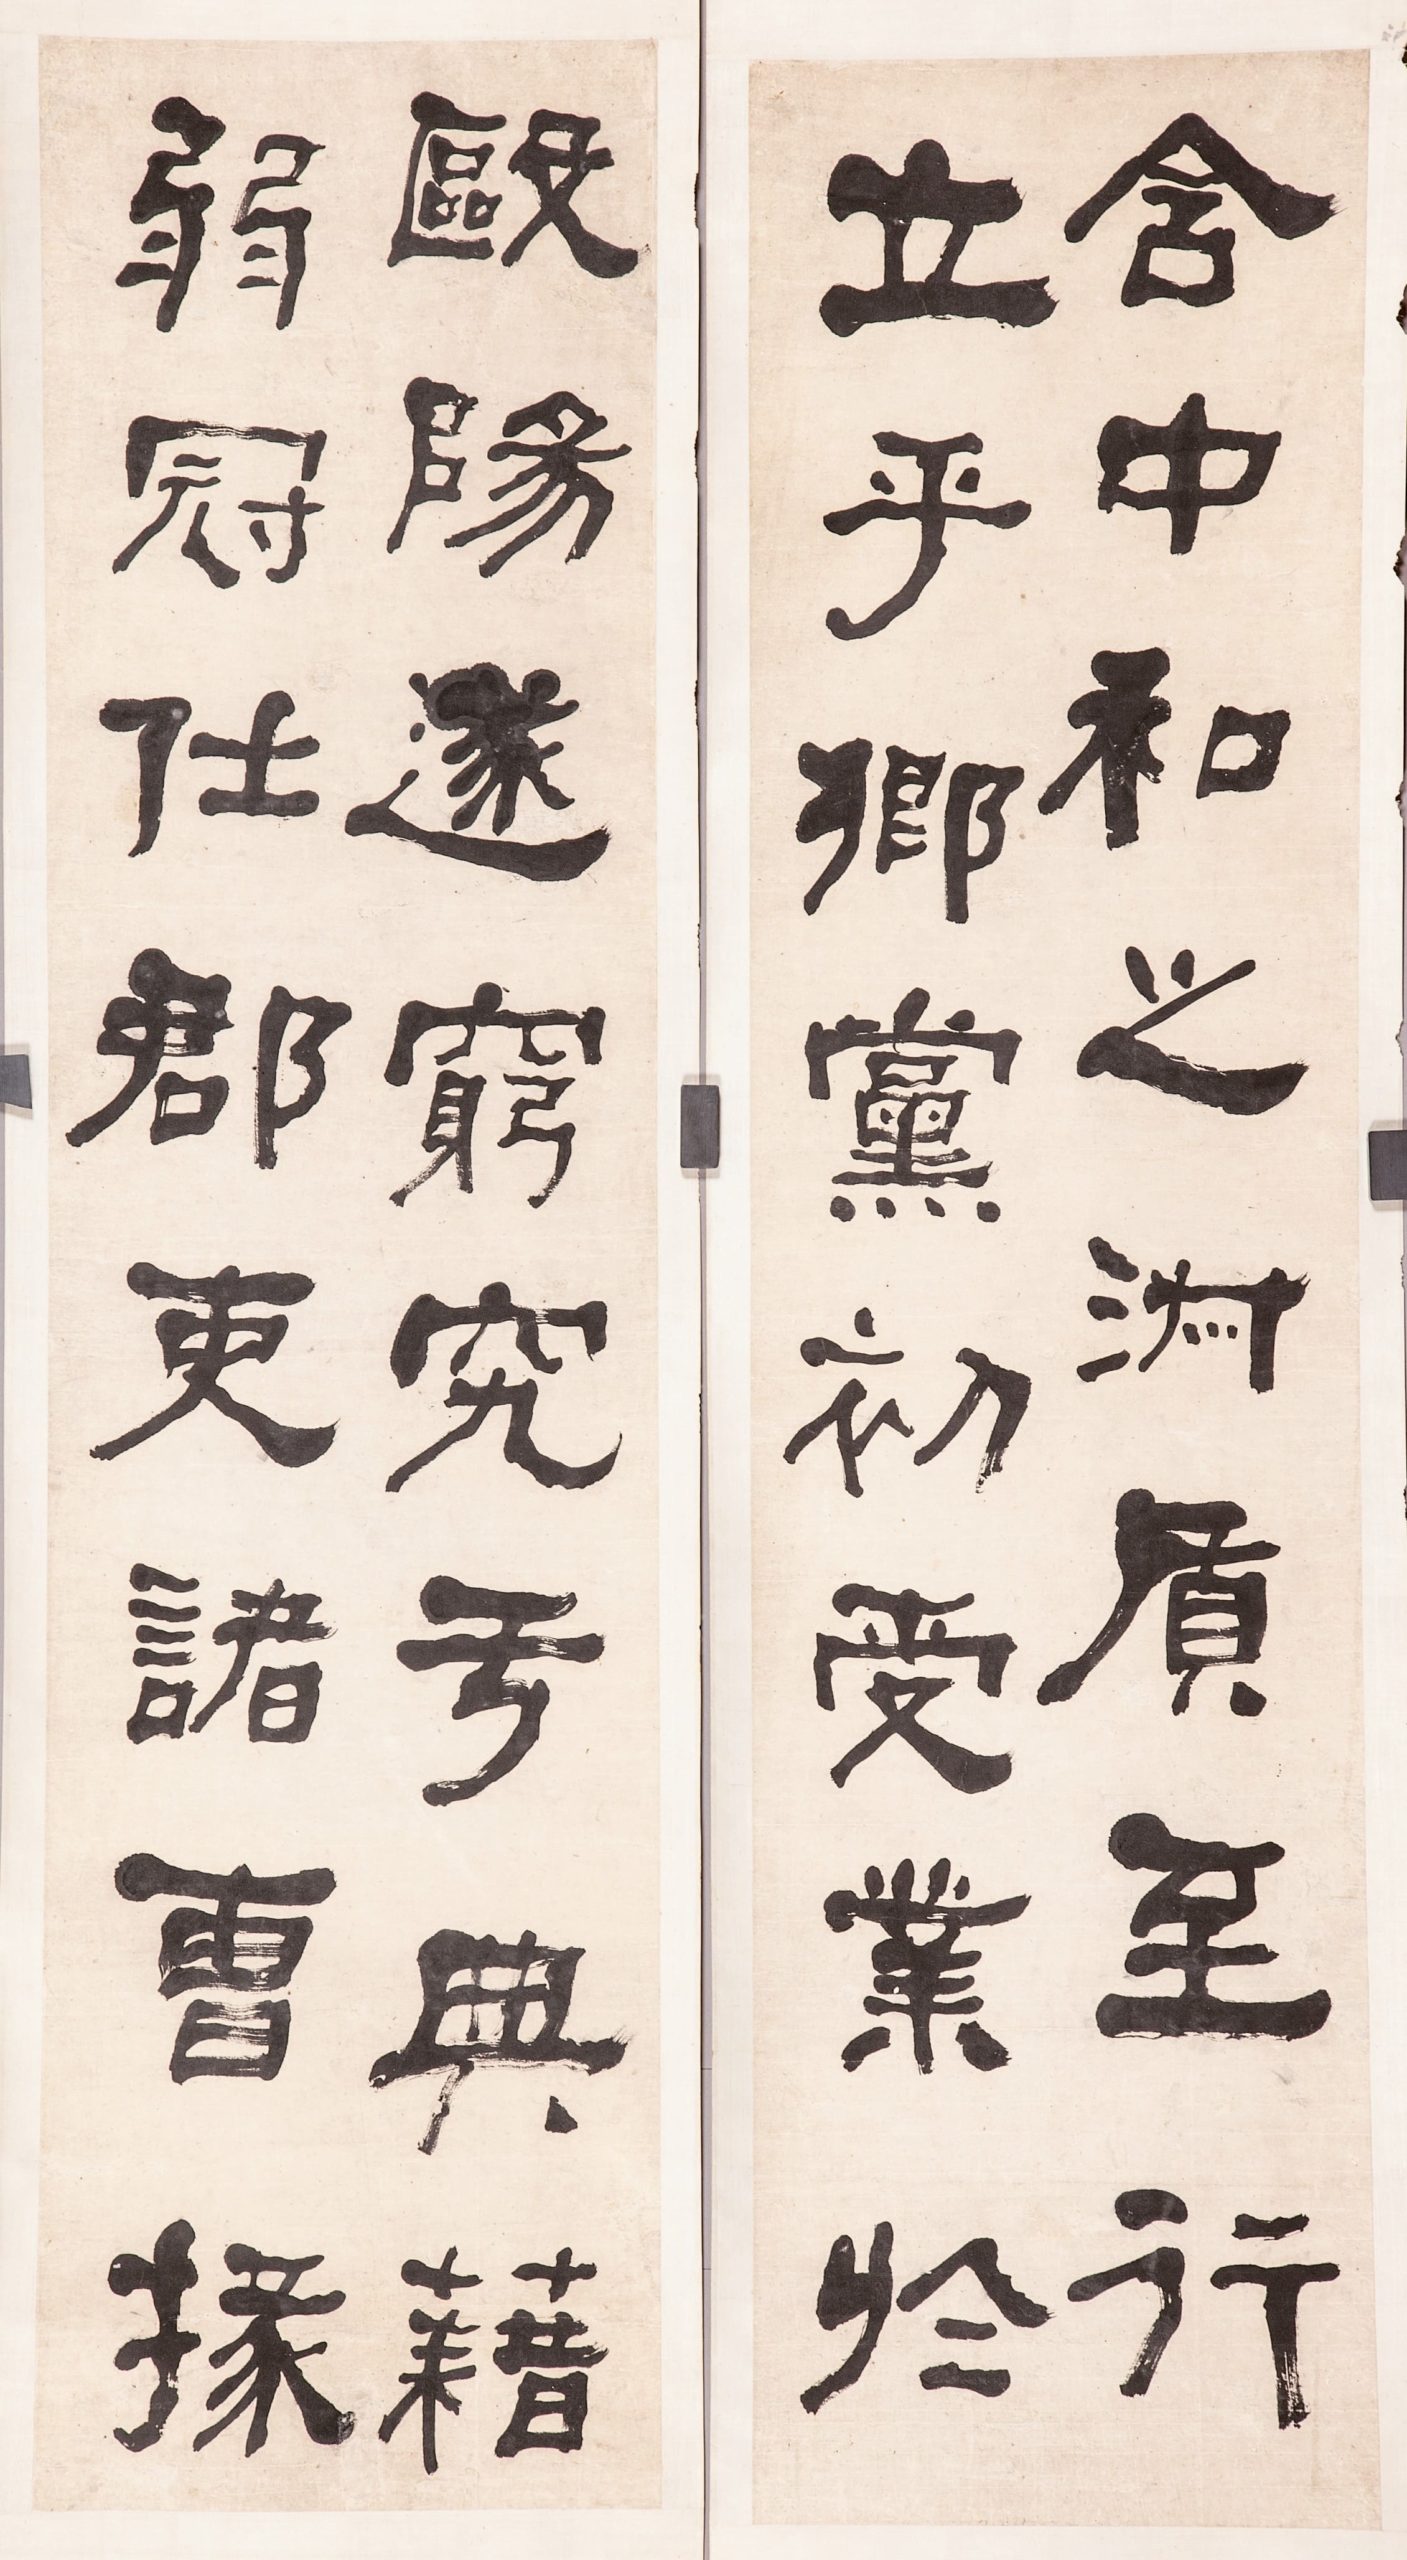 含中和之淑質至行
立乎鄉黨初受業於
毆陽遂窮究亐典藉
弱冠仕郡吏諸曹掾